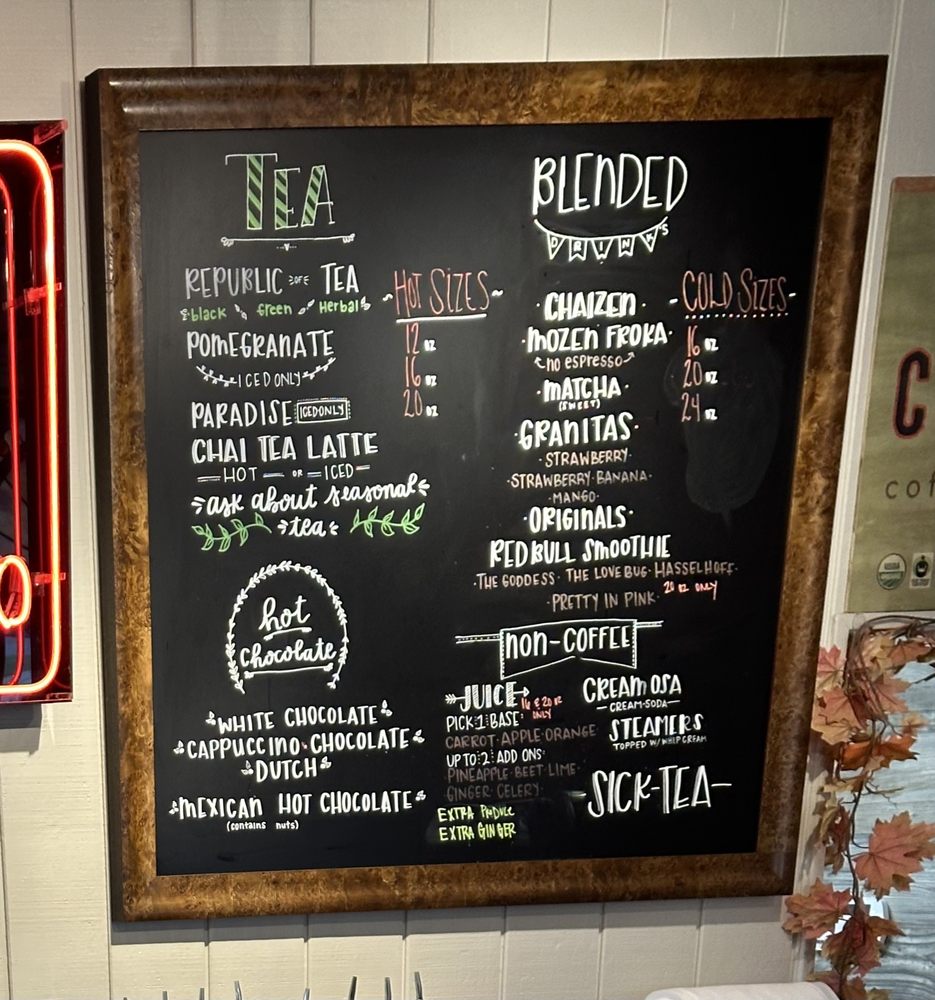 TEA
REPUBLIC OF TEA
black green Herbal
POMEGRANATE
ICED ONLY
PARADISE ICED ONLY
CHAI TEA LATTE
HOT OR ICED
ask about seasonal
tea
HOT SIZES
12 oz
16 oz
20 oz
hot
chocolate
WHITE CHOCOLATE
CAPPUCCINO·CHOCOLATE
DUTCH
MEXICAN HOT CHOCOLATE
(contains nuts)
BLENDED
DRINK'S
·CHAIZEN·
·MOZEN FROKA·
no espresso
·MATCHA·
(SWEET)
·GRANITAS·
·STRAWBERRY·
·STRAWBERRY·BANANA·
·MANGO·
·ORIGINALS·
RED BULL SMOOTHIE
·THE GODDESS·THE LOVE BUG·HASSELHOFF·
·PRETTY IN PINK· 20 oz ONLY
-COLD SIZES-
16 oz
20 oz
24 oz
non-COFFEE
JUICE 16 & 20 oz ONLY
PICK·1·BASE:
CARROT·APPLE·ORANGE
UP TO·2·ADD ONS·
PINEAPPLE·BEET·LIME·
GINGER·CELERY·
EXTRA PRODUCE
EXTRA GINGER
CREAMOSA
—CREAM·SODA—
STEAMERS
TOPPED W/ WHIP CREAM
-SICK-TEA-
C
cof
USDA